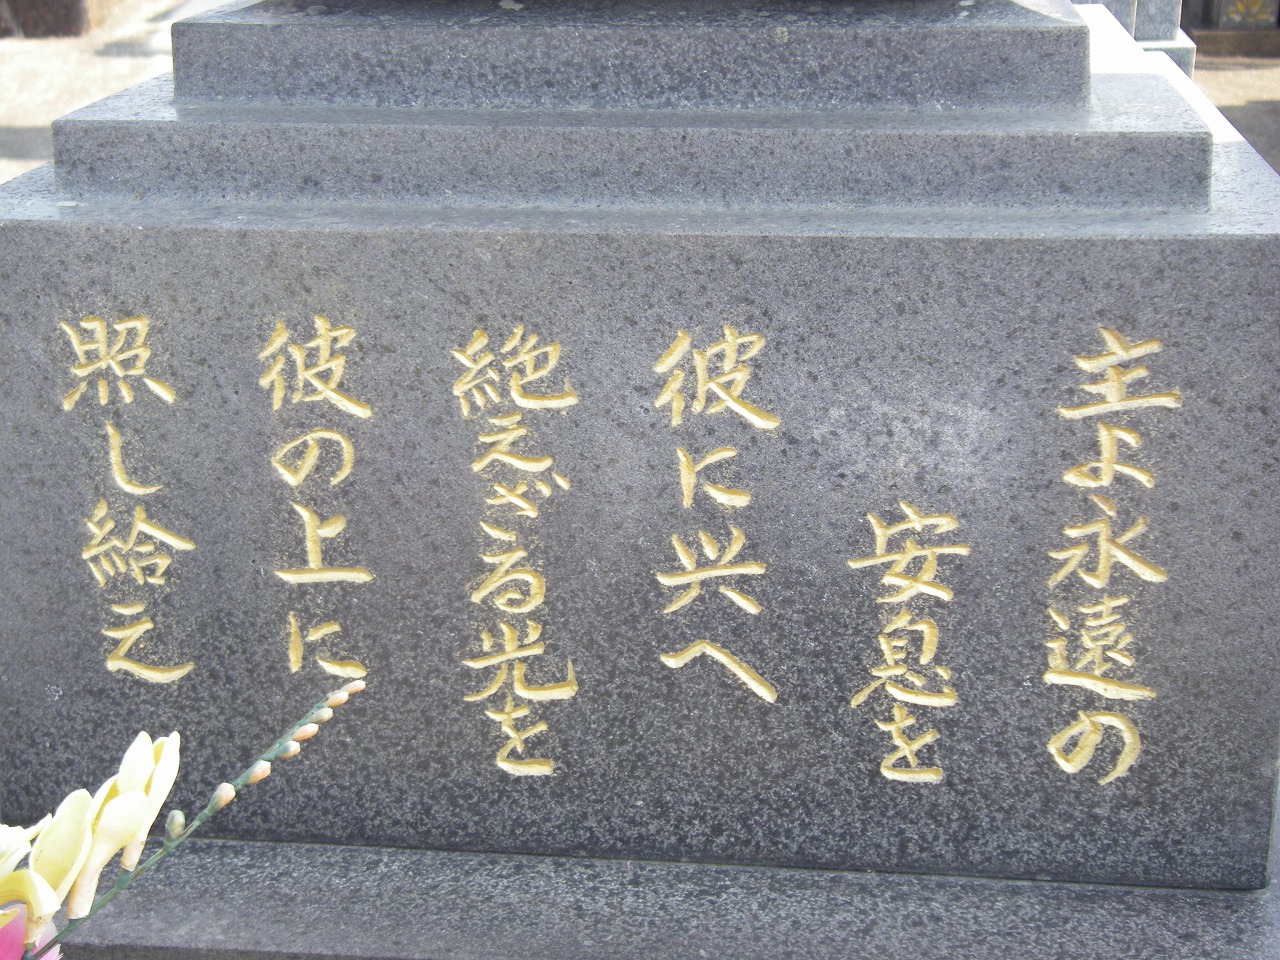 主よ永遠の
安息を
彼に兴へ
絶えざる光を
彼の上に
照し給え